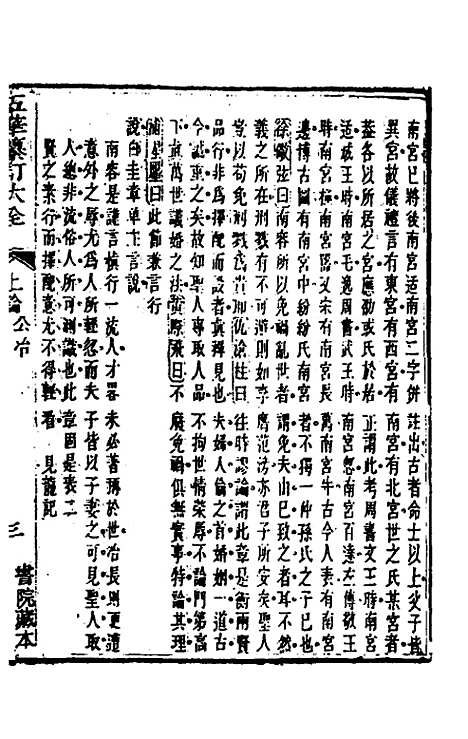 南宮已將後南宮适南宮二字併註出古者命士以上父子皆
異宮故儀禮言有東宮有西宮有南宮有北宮世之氏某宮者
蓋各以所居之宮應劭或氏於居正謂此考周書文王時南宮
适武王時南宮毛逸周書武王時南宮忽南宮百達左傳敬王
時南宮極南宮嚚又宋有南宮長萬南宮牛古今人表有南宮
邊博古圖有南宮中則知氏南宮者不獨一仲孫氏之子已也
徐巖弦曰南容所謂免禍亂世者謂免夫山已致之者耳不然
義之所在刑戮有不可避則如享
豈以苟免刑戮爲貴 曰往時認論謂此章是衡兩賢
品行非爲擇配而設者眞得見也夫婦人倫之首婚姻一道古
今誠重之矣故知聖人專取人品不拘世情榮辱不論門第高
下眞萬世議婚之法黃際飛曰不廢免禍俱無實事特論其理
曰此節兼言行
說白圭章單主言說
南容是謹言愼行一流人才畧未必著稱於世冶長則更遭
意外之辱尤爲人所輕忽而夫子皆以子妻之可見聖人取
人總非流俗人所可測識也此章固是表二
賢之素行而擇配意尤不得輕看 見龍記
五華纂訂大全 上論 公冶 三 書院藏本